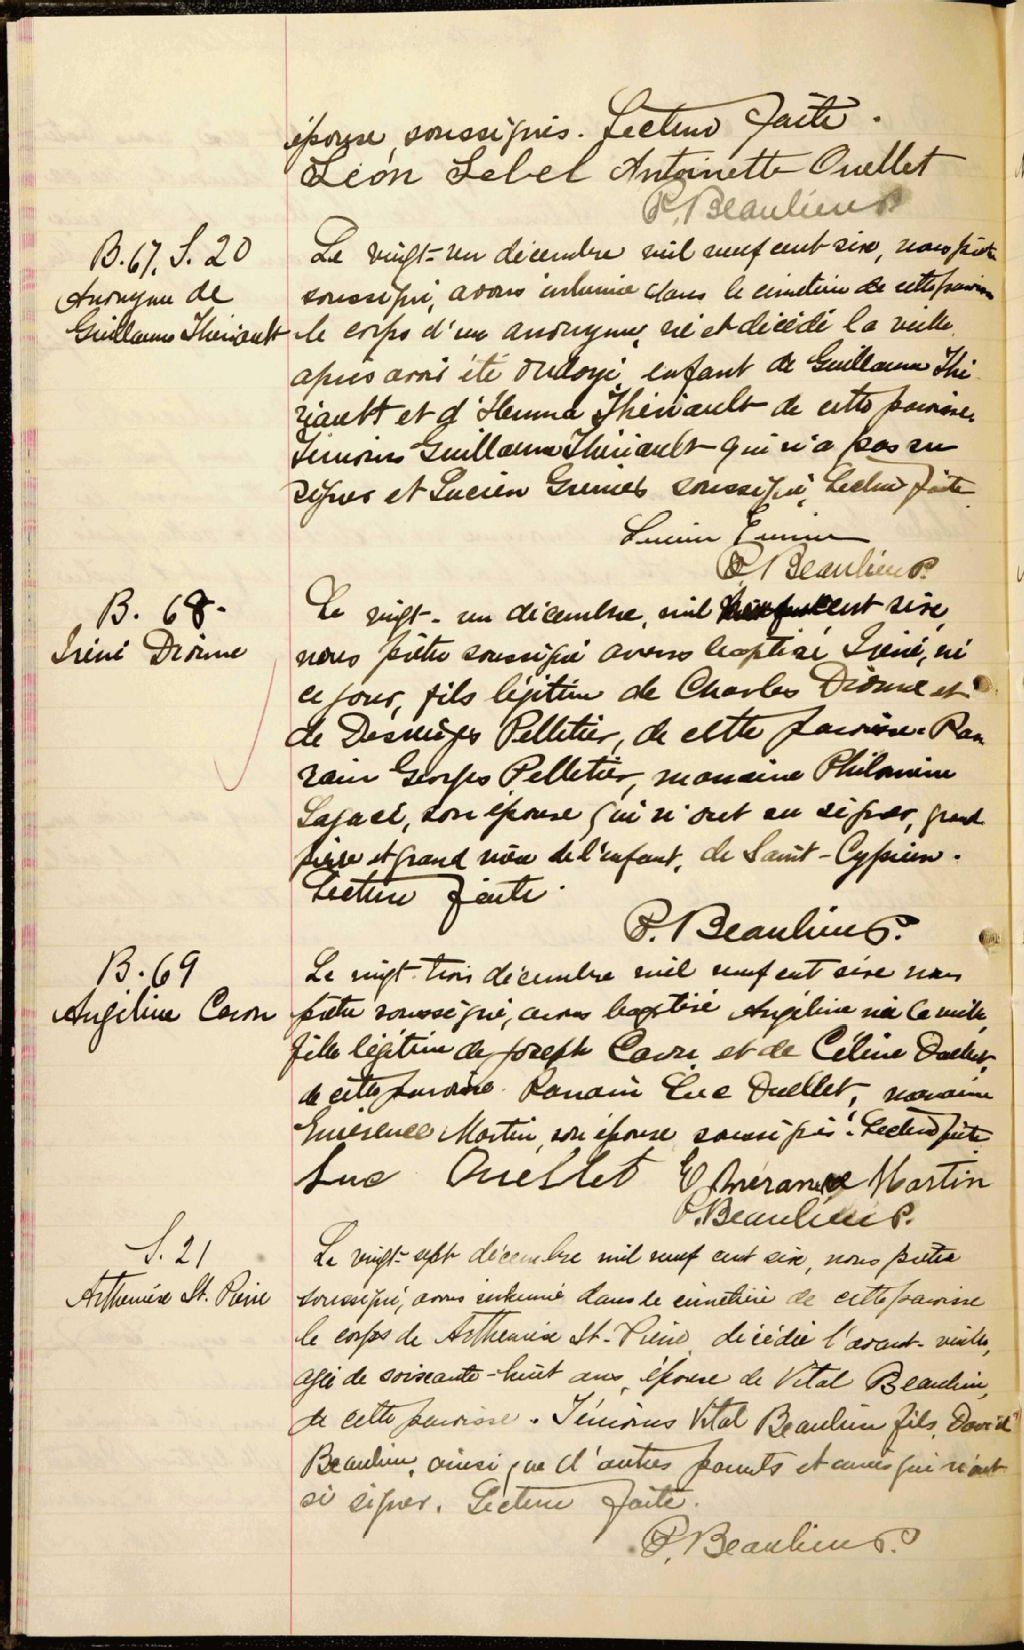 épouse, soussignés. Lecture faite.
Léon Lebel Antoinette Ouellet
P. Beaulieu P.
B. 67, S. 20
Anonyme de
Guillaume Thériault
Le vingt-un décembre mil neuf cent six, nous prêtre
soussigné, avons inhumé dans le cimetière de cette paroisse
le corps d'un anonyme, né et décédé la veille
après avoir été ondoyé, enfant de Guillaume Thé
riault et d'Hemma Thériault de cette paroisse.
Témoins Guillaume Thériault qui n'a pas su
signer et Lucien Grenier soussigné, Lecture faite.
Lucien
P. Beaulieu P.
B. 68.
Iréné Dionne
Le vingt-un décembre, mil neuf cent six,
nous prêtre soussigné avons baptisé Iréné, né
ce jour, fils légitime de Charles Dionne et
de Desneiges Pelletier, de cette paroisse. Par
rain Georges Pelletier, marraine Philomène
Lagacé, son épouse qui n'ont su signer, grand
père et grand mère de l'enfant, de Saint-Cyprien.
Lecture faite.
P. Beaulieu P.
B. 69
Angéline Caron
Le vingt-trois décembre mil neuf cent six nous
prêtre soussigné, avons baptisé Angéline née la veille,
fille légitime de Joseph Caron et de Céline Ouellet,
de cette paroisse. Parrain Luc Ouellet, marraine
Émérence Martin, son épouse soussignés. Lecture faite
Luc Ouellet Émérance Martin
P. Beaulieu P.
S. 21
Arthémise St. Pierre
Le vingt-sept décembre mil neuf cent six, nous prêtre
soussigné, avons inhumé dans le cimetière de cette paroisse
le corps de Arthémise St-Pierre, décédée l'avant-veille,
agée de soixante-huit ans, épouse de Vital Beaulieu,
de cette paroisse. Témoins Vital Beaulieu fils, David
Beaulieu, ainsi que d'autres parents et amis qui n'ont
su signer. Lecture faite.
P. Beaulieu P.